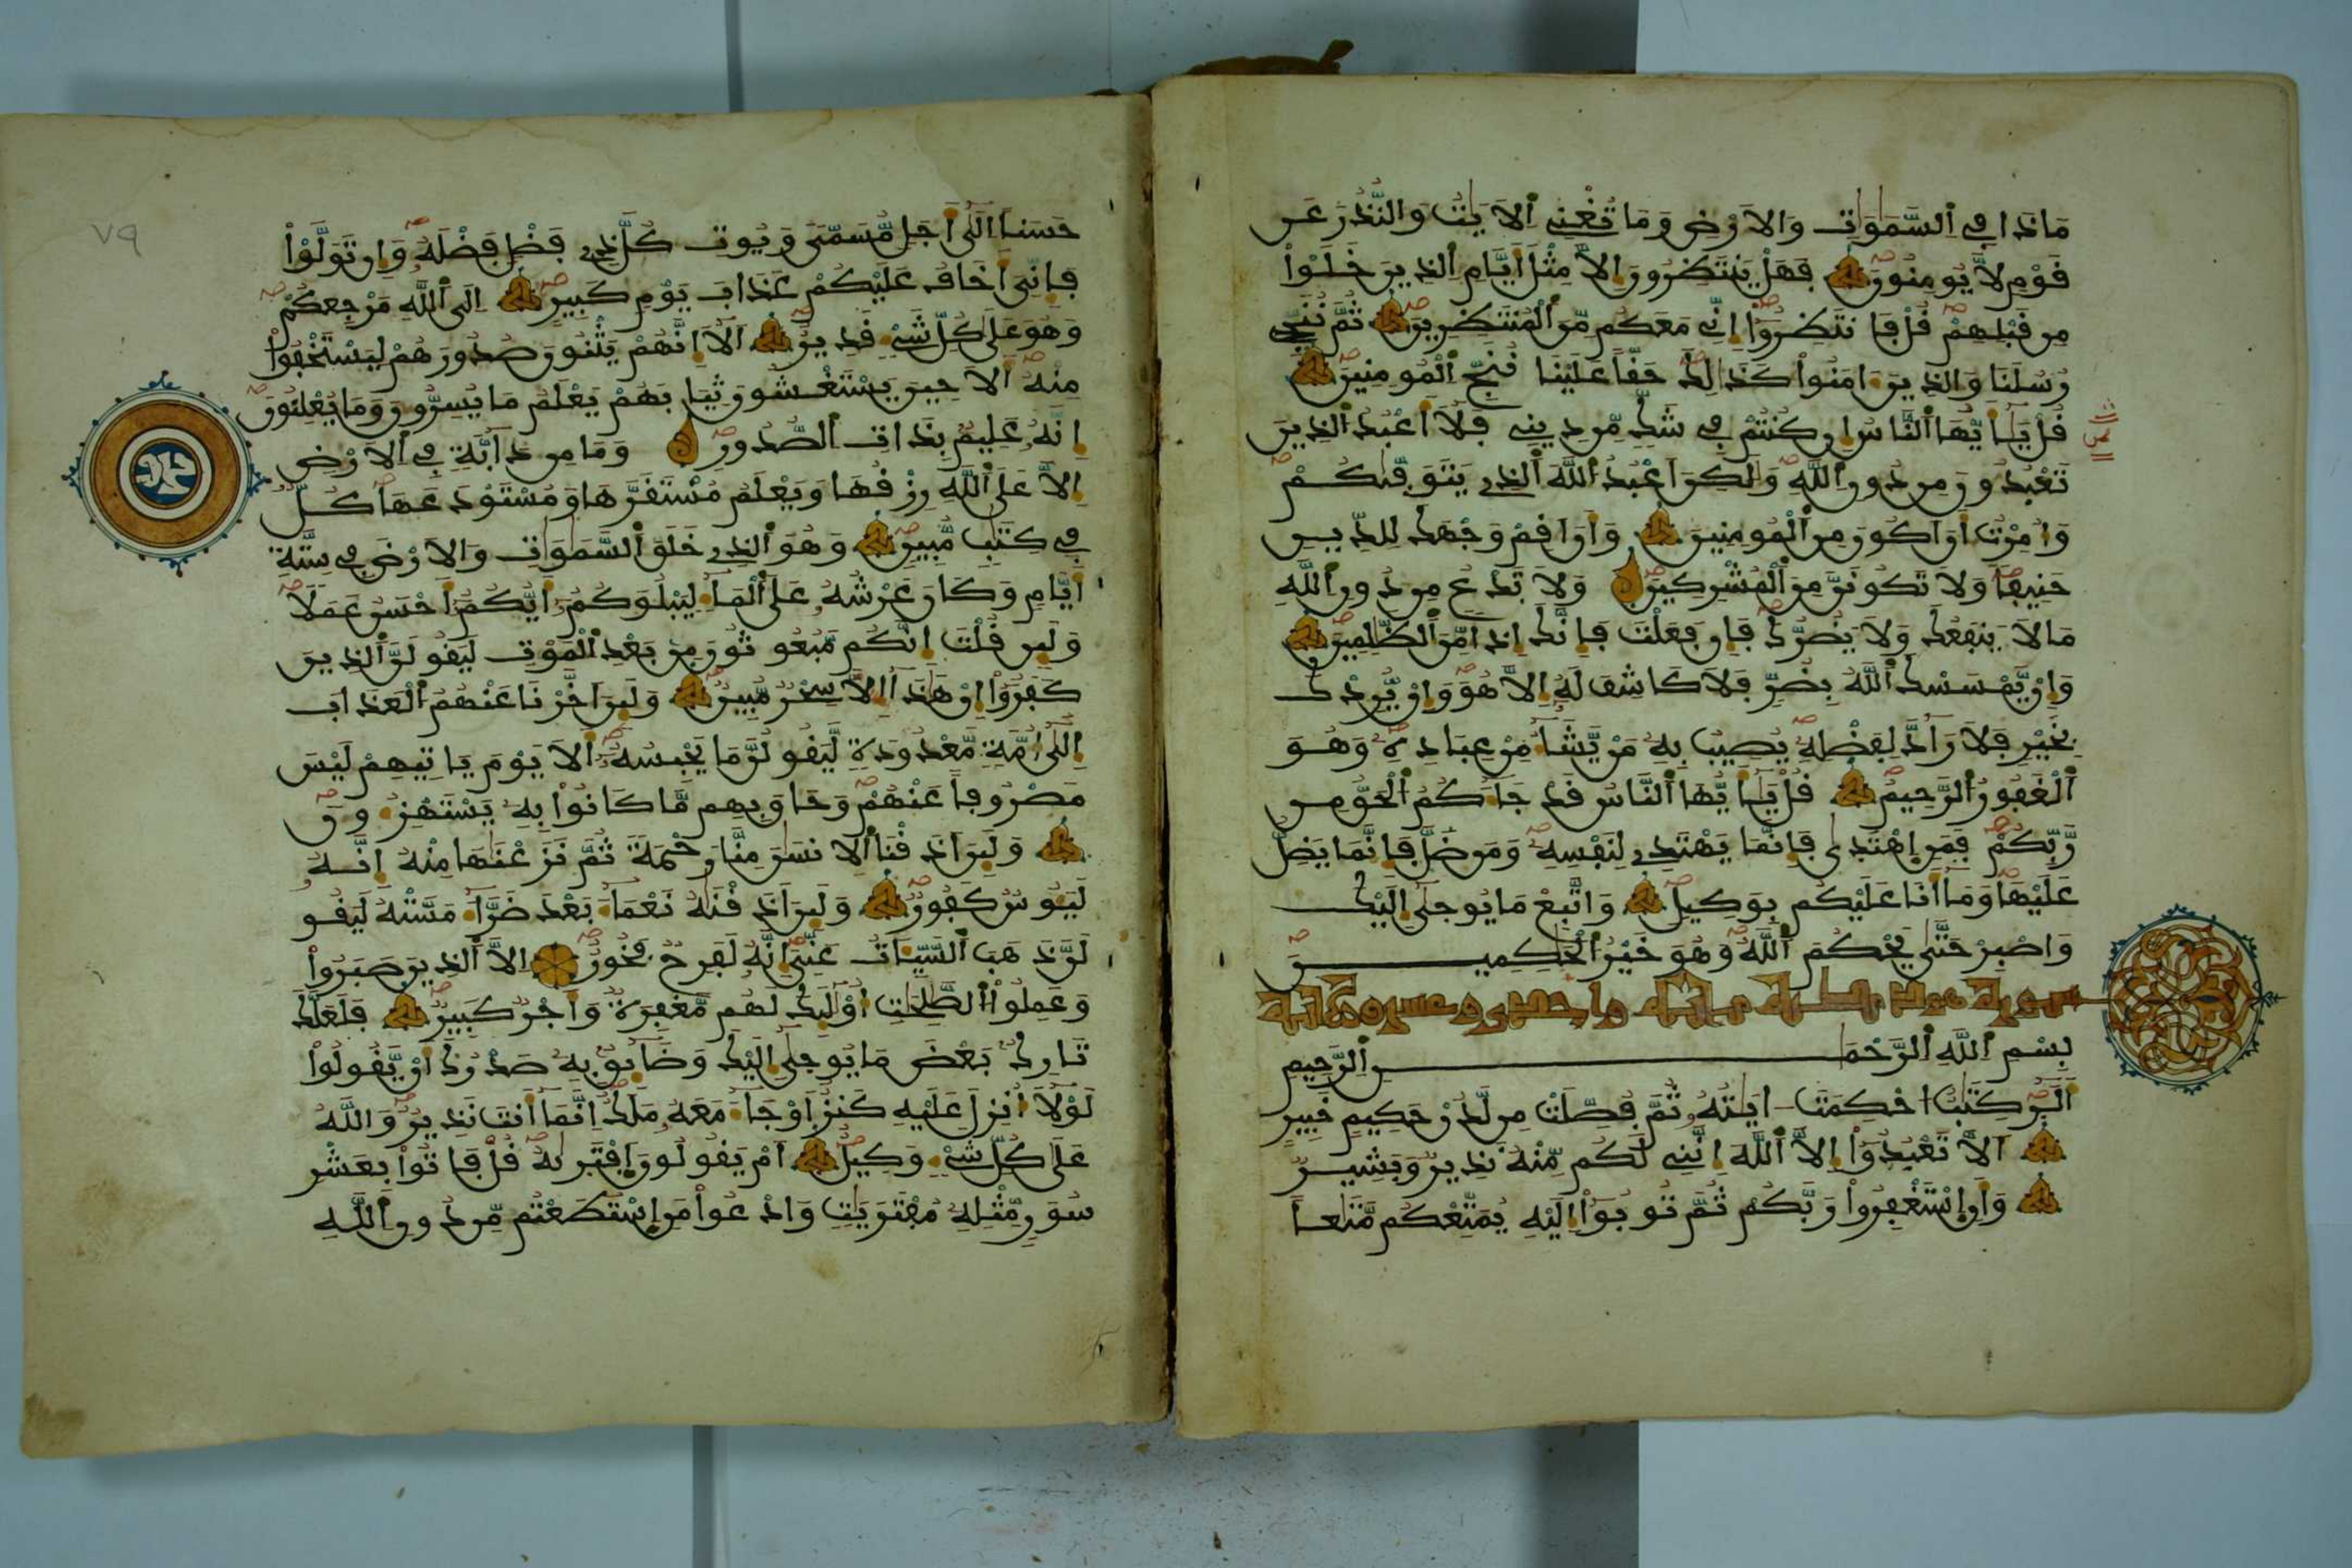 مَاذَا فِي اِ۬لسَّمَٰوَٰتِ وَالَارْضِ وَمَا تُغْنِے اِ۬لَايَٰتُ وَالنُّذُرُ عَن
قَوْمٖ لَّا يُومِنُونَ فَهَلْ يَنتَظِرُونَ إِلَّا مِثْلَ أَيَّامِ اِ۬لذِينَ خَلَوْاْ
مِن قَبْلِهِمْ قُلْ فَانتَظِرُوٓاْ إِنِّے مَعَكُم مِّنَ اَ۬لْمُنتَظِرِينَ ثُمَّ نُنَجِّے
رُسُلَنَا وَالذِينَ ءَامَنُواْ كَذَٰلِكَ حَقّاً عَلَيْنَا نُنَجِّ اِ۬لْمُومِنِينَ
قُلْ يَٰٓأَيُّهَا اَ۬لنَّاسُ إِن كُنتُمْ فِي شَكّٖ مِّن دِينِے فَلَآ أَعْبُدُ اُ۬لذِينَ
تَعْبُدُونَ مِن دُونِ اِ۬للَّهِ وَلَٰكِنَ اَعْبُدُ اُ۬للَّهَ اَ۬لذِے يَتَوَفَّىٰكُمْ
وَأُمِرْتُ أَنَ اَكُونَ مِنَ اَ۬لْمُومِنِينَ وَأَنَ اَقِمْ وَجْهَكَ لِلدِّينِ
حَنِيفاً وَلَا تَكُونَنَّ مِنَ اَ۬لْمُشْرِكِينَ وَلَا تَدْعُ مِن دُونِ اِ۬للَّهِ
مَا لَا يَنفَعُكَ وَلَا يَضُرُّكَ فَإِن فَعَلْتَ فَإِنَّكَ إِذاً مِّنَ اَ۬لظَّٰلِمِينَ
وَإِنْ يَّمْسَسْكَ اَ۬للَّهُ بِضُرّٖ فَلَا كَاشِفَ لَهُۥٓ إِلَّا هُوَ وَإِنْ يُّرِدْكَ
بِخَيْرٖ فَلَا رَآدَّ لِفَضْلِهِ يُصِيبُ بِهِ مَنْ يَّشَآءُ مِنْ عِبَادِهِ وَهُوَ
اَ۬لْغَفُورُ اُ۬لرَّحِيمُ قُلْ يَٰٓأَيُّهَا اَ۬لنَّاسُ قَدْ جَآءَكُمُ اُ۬لْحَقُّ مِن
رَّبِّكُمْ فَمَنِ اِ۪هْتَدَىٰ فَإِنَّمَا يَهْتَدِے لِنَفْسِهِ وَمَن ضَلَّ فَإِنَّمَا يَضِلُّ
عَلَيْهَا وَمَآ أَنَا عَلَيْكُم بِوَكِيلٖ وَاتَّبِعْ مَا يُوحَىٰٓ إِلَيْكَ
وَاصْبِرْ حَتَّىٰ يَحْكُمَ اَ۬للَّهُ وَهُوَ خَيْرُ اُ۬لْحَٰكِمِينَ
سورة هود
بِسْمِ اِ۬للَّهِ اِ۬لرَّحْمَٰنِ اِ۬لرَّحِيمِ
أَلَٓرٰ كِتَٰبٌ اُحْكِمَتَ اٰيَٰتُهُۥ ثُمَّ فُصِّلَتْ مِن لَّدُنْ حَكِيمٍ خَبِيرٍ
اَلَّا تَعْبُدُوٓاْ إِلَّا اَ۬للَّهَ إِنَّنِے لَكُم مِّنْهُ نَذِيرٞ وَبَشِيرٞ
وَأَنِ اِ۪سْتَغْفِرُواْ رَبَّكُمْ ثُمَّ تُوبُوٓاْ إِلَيْهِ يُمَتِّعْكُم مَّتَٰعاً
٧٩
حَسَناً اِلَىٰٓ أَجَلٖ مُّسَمّىٗ وَيُوتِ كُلَّ ذِے فَضْلٖ فَضْلَهُ وَإِن تَوَلَّوْاْ
فَإِنِّيَ أَخَافُ عَلَيْكُمْ عَذَابَ يَوْمٖ كَبِيرٍ اِلَى اَ۬للَّهِ مَرْجِعُكُمْ
وَهُوَ عَلَىٰ كُلِّ شَےْءٖ قَدِيرٌ اَلَآ إِنَّهُمْ يَثْنُونَ صُدُورَهُمْ لِيَسْتَخْفُواْ
مِنْهُ أَلَا حِينَ يَسْتَغْشُونَ ثِيَابَهُمْ يَعْلَمُ مَا يُسِرُّونَ وَمَا يُعْلِنُونَ
إِنَّهُۥ عَلِيمُۢ بِذَاتِ اِ۬لصُّدُورِ وَمَا مِن دَآبَّةٖ فِي اِ۬لَارْضِ
إِلَّا عَلَى اَ۬للَّهِ رِزْقُهَا وَيَعْلَمُ مُسْتَقَرَّهَا وَمُسْتَوْدَعَهَا كُلّٞ
فِي كِتَٰبٖ مُّبِينٖ وَهُوَ اَ۬لذِے خَلَقَ اَ۬لسَّمَٰوَٰتِ وَالَارْضَ فِي سِتَّةِ
أَيَّامٖ وَكَانَ عَرْشُهُۥ عَلَى اَ۬لْمَآءِ لِيَبْلُوَكُمُۥٓ أَيُّكُمُۥٓ أَحْسَنُ عَمَلاً
وَلَئِن قُلْتَ إِنَّكُم مَّبْعُوثُونَ مِنۢ بَعْدِ اِ۬لْمَوْتِ لَيَقُولَنَّ اَ۬لذِينَ
كَفَرُوٓاْ إِنْ هَٰذَآ إِلَّا سِحْرٞ مُّبِينٞ وَلَئِنَ اَخَّرْنَا عَنْهُمُ اُ۬لْعَذَابَ
إِلَىٰٓ أُمَّةٖ مَّعْدُودَةٖ لَّيَقُولُنَّ مَا يَحْبِسُهُۥ أَلَا يَوْمَ يَاتِيهِمْ لَيْسَ
مَصْرُوفاً عَنْهُمْ وَحَاقَ بِهِم مَّا كَانُواْ بِهِ يَسْتَهْزِءُونَ
وَلَئِنَ اَذَقْنَا اَ۬لِانسَٰنَ مِنَّا رَحْمَةٗ ثُمَّ نَزَعْنَٰهَا مِنْهُ إِنَّهُ
لَيَـُٔوسٞ كَفُورٞ وَلَئِنَ اَذَقْنَٰهُ نَعْمَآءَ بَعْدَ ضَرَّآءَ مَسَّتْهُ لَيَقُو
لَنَّ ذَهَبَ اَ۬لسَّيِّـَٔاتُ عَنِّيَ إِنَّهُۥ لَفَرِحٞ فَخُورٌ اِلَّا اَ۬لذِينَ صَبَرُواْ
وَعَمِلُواْ اُ۬لصَّٰلِحَٰتِ أُوْلَٰٓئِكَ لَهُم مَّغْفِرَةٞ وَأَجْرٞ كَبِيرٞ فَلَعَلَّكَ
تَارِكُۢ بَعْضَ مَا يُوحَىٰٓ إِلَيْكَ وَضَآئِقُۢ بِهِ صَدْرُكَ أَنْ يَّقُولُواْ
لَوْلَآ أُنزِلَ عَلَيْهِ كَنزٌ اَوْ جَآءَ مَعَهُۥ مَلَكٌ اِنَّمَآ أَنتَ نَذِيرٞ وَاللَّهُ
عَلَىٰ كُلِّ شَےْءٖ وَكِيلٌ اَمْ يَقُولُونَ اَ۪فْتَرَىٰهُ قُلْ فَاتُواْ بِعَشْرِ
سُوَرٖ مِّثْلِهِ مُفْتَرَيَٰتٖ وَادْعُواْ مَنِ اِ۪سْتَطَعْتُم مِّن دُونِ اِ۬للَّهِ